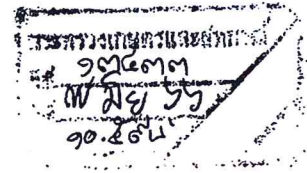 กระทรวงเกษตรและสหกรณ์
๑๓๔๓๓
๗ มิย ๖๖
๑๐.๕๙น